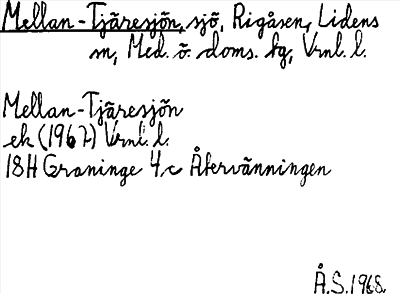 Mellan-Tjäresjön, sjö, Rigåsen, Lidens
sn, Med. ö. doms. hg, Vrnl. l.
Mellan-Tjäresjön
ek (1967) Vrnl. l.
18H Graninge 4c Återvänningen
Å.S. 1968.